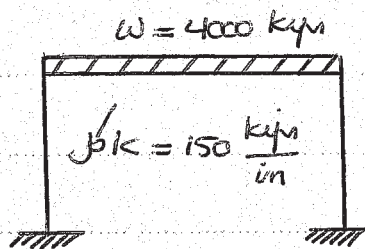 W = 4000 kips
کل k = 150 kips/in